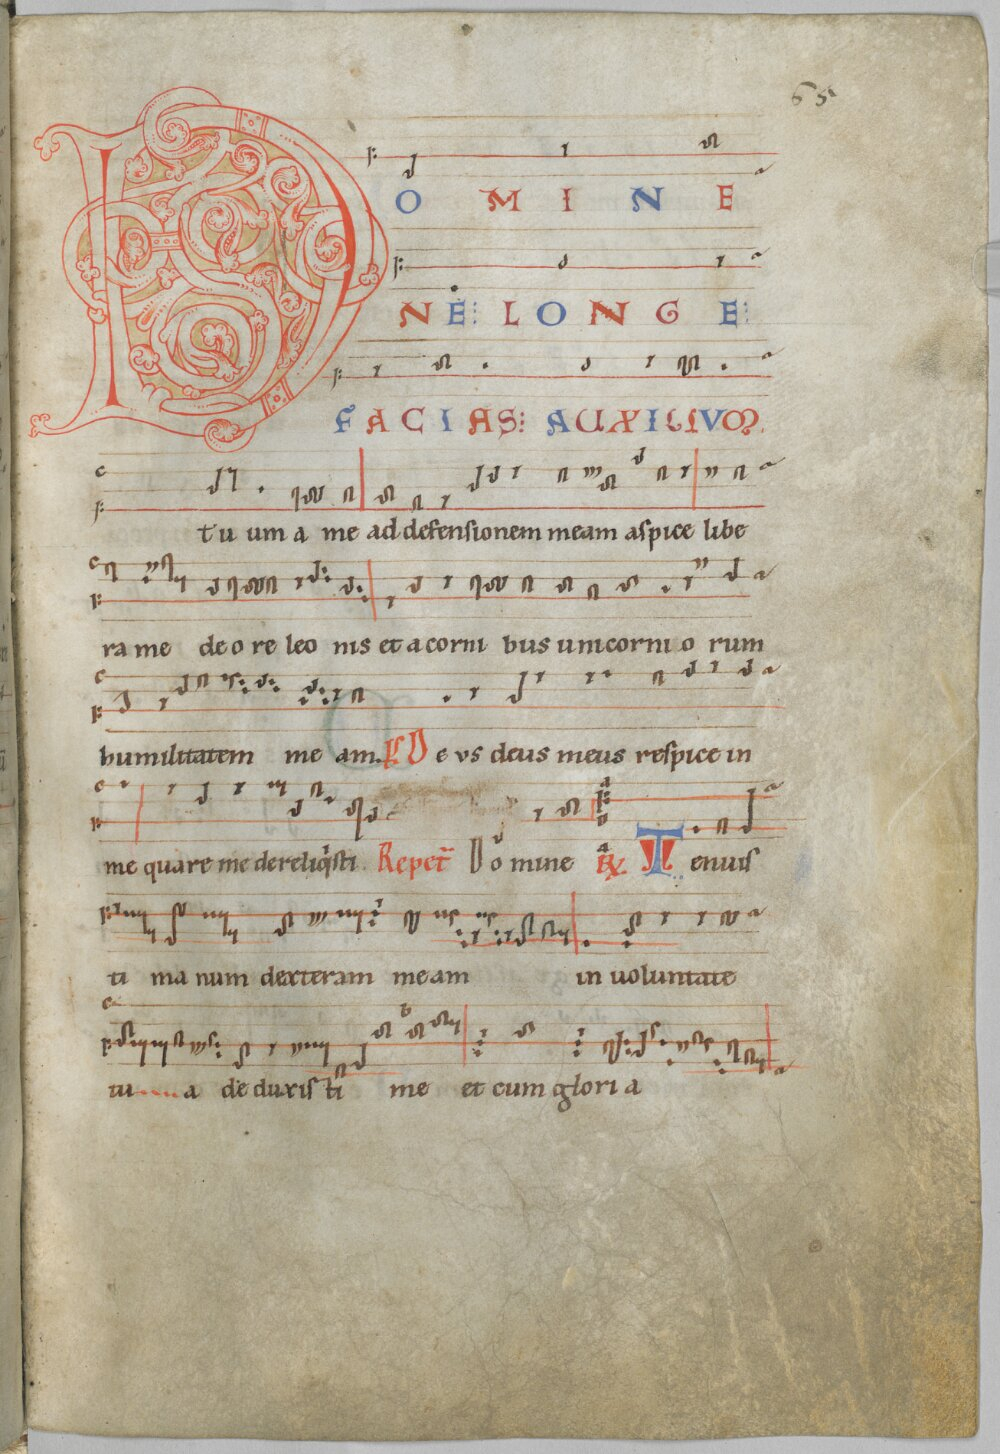 65
DOMINE
NE: LONGE:
FACIAS: AUXILIUM
tu um a me ad defensionem meam aspice libe
ra me de o re leo nis et a corni bus unicorni o rum
humilitatem me am. V De us deus meus respice in
me quare me dereliqsti. Repet Do mine GR Tenuis
ti ma num dexteram meam in uoluntate
tu a de duxis ti me et cum glori a